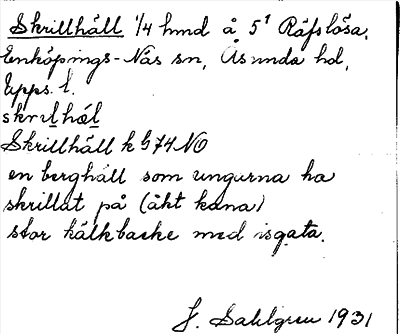 Skrillhäll 1/4 hmd å 5¹ Räfslösa,
Enköpings-Näs sn, Åsunda hd,
Upps. l.
skrilhäl
Skrillhäll k G74 NO
en berghäll som ungurna ha
skrillat på (åkt kana)
stor kälkbacke med isgata.
J. Sahlgren 1931